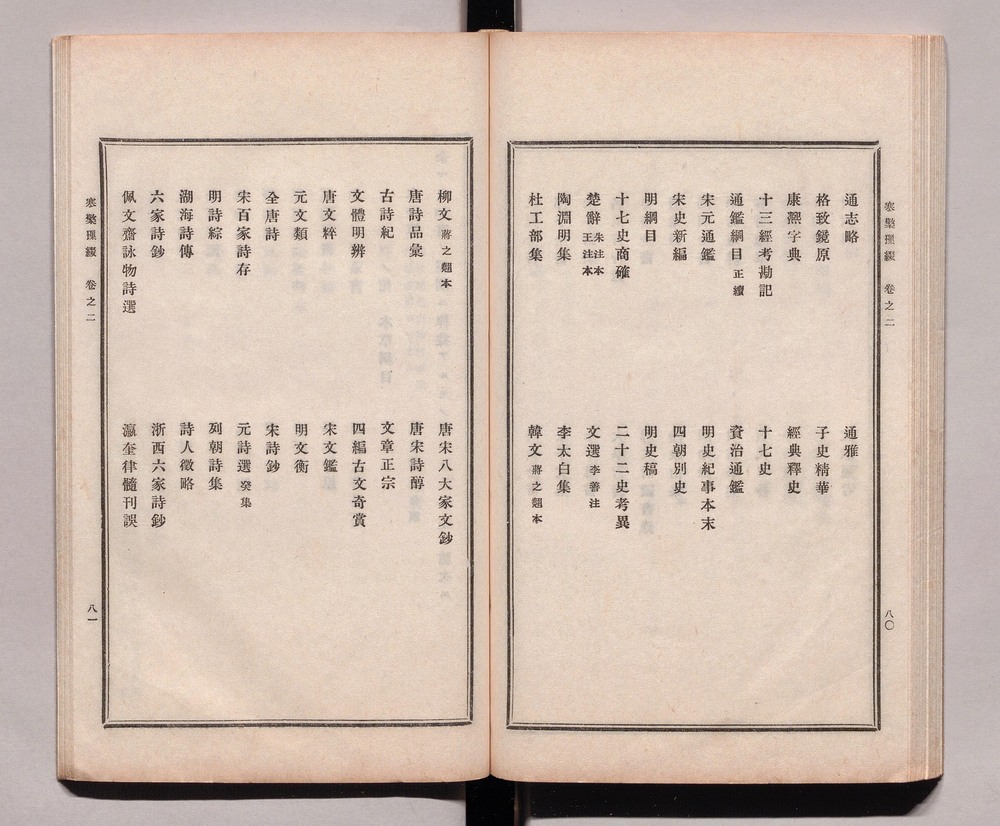 寒檠璅綴 卷之二
八〇
通志略 通雅
格致鏡原 子史精華
康熙字典 經典釋史
十三經考勘記 十七史
通鑑綱目 正續 資治通鑑
朱元通鑑 明史紀事本末
宋史新編 四朝別史
明綱目 明史稿
十七史商確 二十二史考異
楚辭 朱注本 王注本 文選 李善注
陶淵明集 李太白集
杜工部集 韓文 蔣之翹本
柳文 蔣之翹本 唐宋八大家文鈔
唐詩品彙 唐宋詩醇
古詩紀 文章正宗
文體明辨 四編古文奇賞
唐文粹 宋文鑑
元文類 明文衡
全唐詩 宋詩鈔
宋百家詩存 元詩選 癸集
明詩綜 列朝詩集
湖海詩傳 詩人徵略
六家詩鈔 浙西六家詩鈔
佩文齋詠物詩選 瀛奎律髓刊誤
寒檠璅綴 卷之二
八一